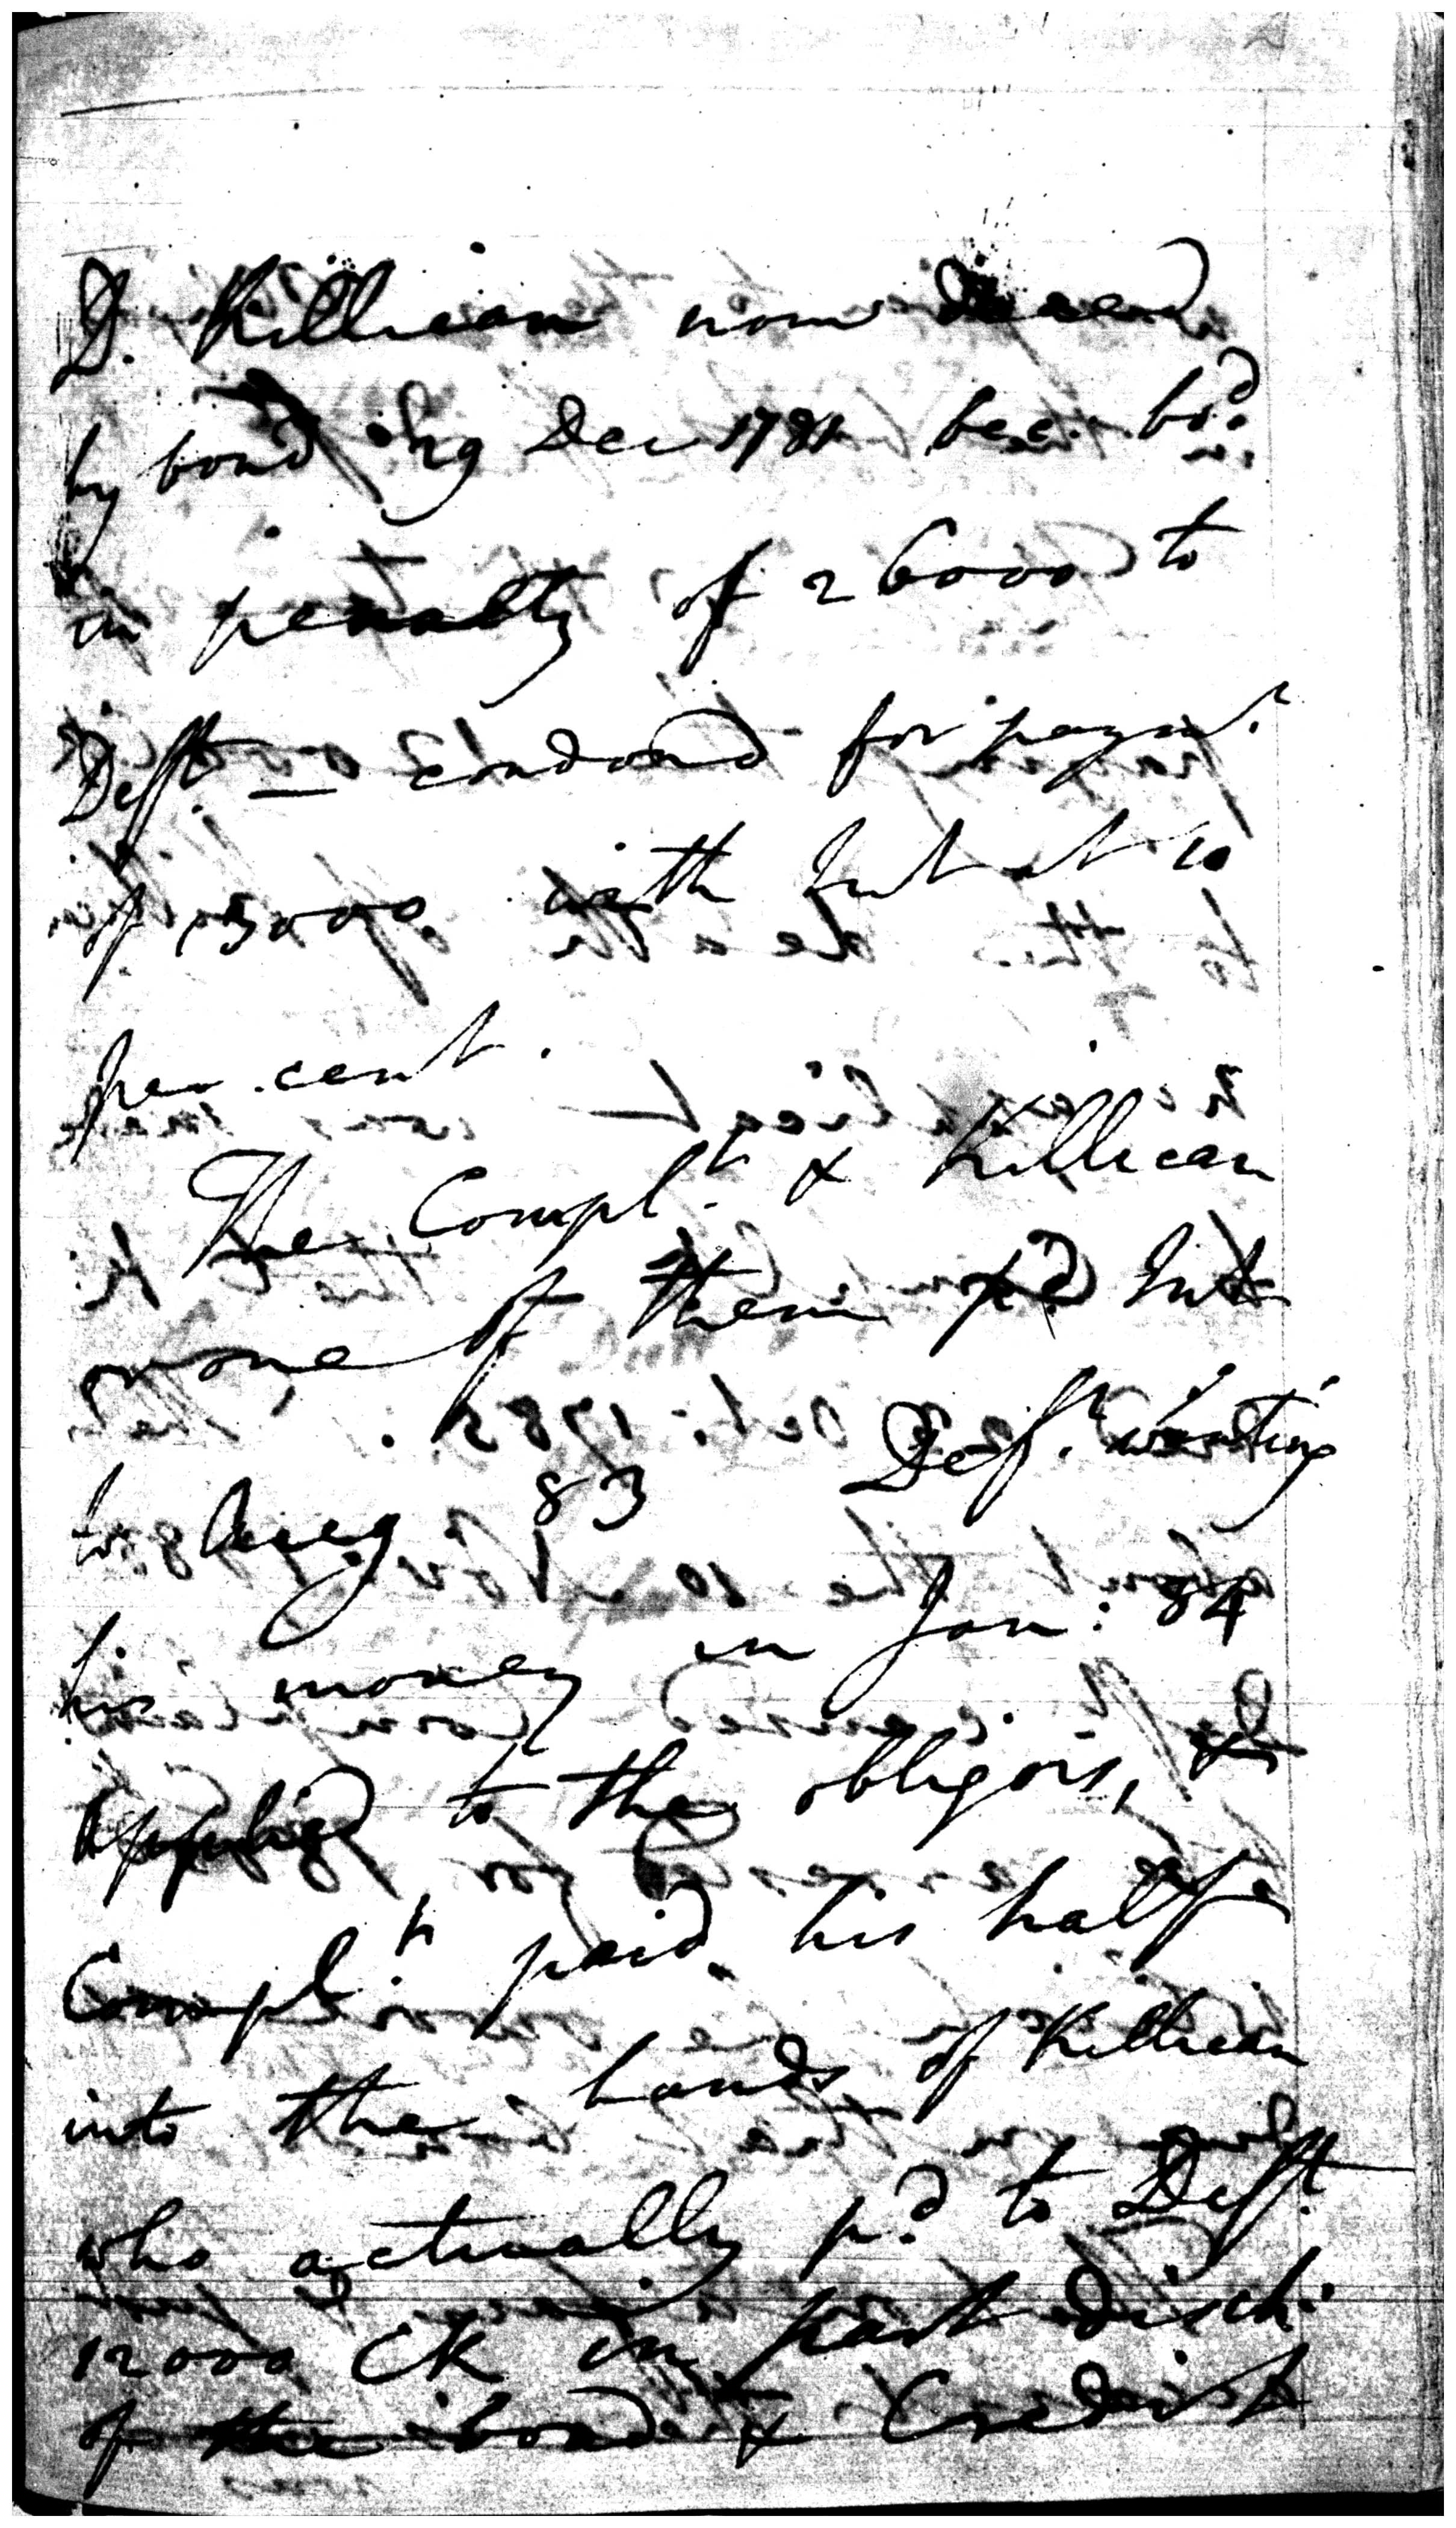 D. Killican now Deced
by bond 29 Dec 1781 bec. bo.d
in penalty of 26000 to
Deft. — condond for paym.t
of 13000 with Int at 10
per cent.
The Compl.t & Killican
or one of them pd Int
to Aug 83 Def.t wanting
his money in Jan: 84
Applied to the obligors, &
Compl.t paid his half
into the hands of Killican
who actually p.d to Deft.
12000 CR in part disch.
of the bond & Credit